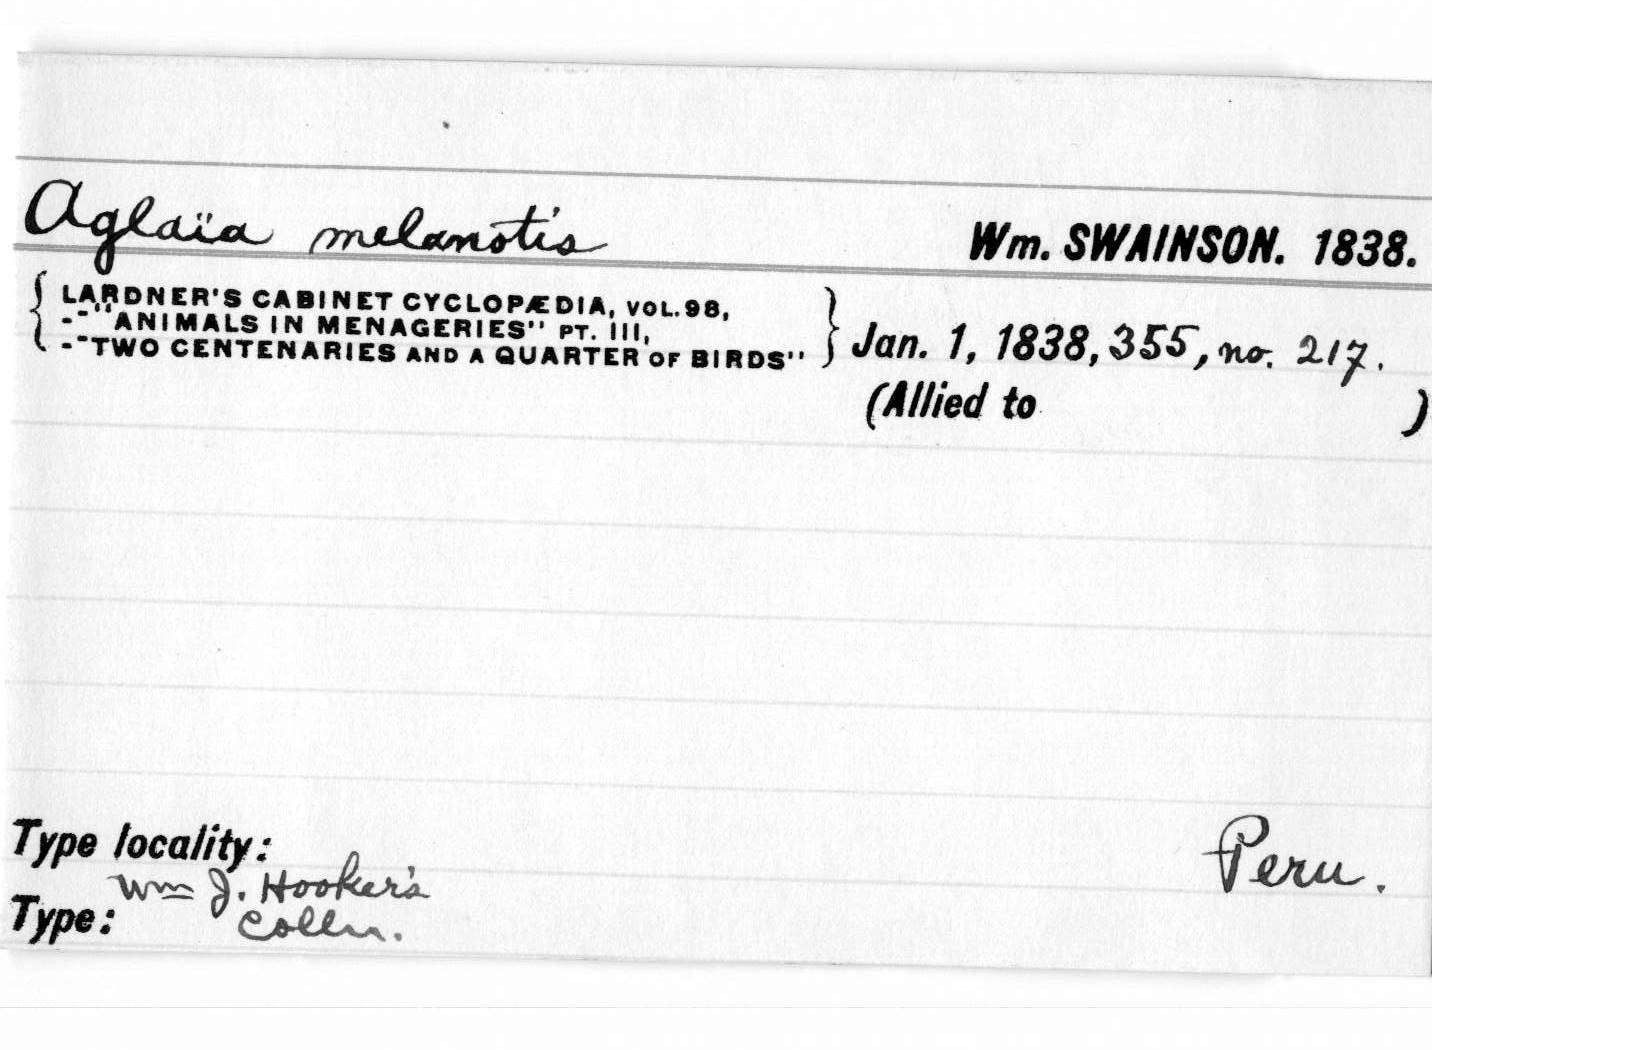 Aglaïa melanotis Wm. SWAINSON. 1838.
{ LARDNER'S CABINET CYCLOPÆDIA, VOL. 98,
--"ANIMALS IN MENAGERIES" PT. III,
--"TWO CENTENARIES AND A QUARTER OF BIRDS" } Jan. 1, 1838, 355, no. 217.
(Allied to )
Type locality: Peru.
Wm J. Hooker's
Type: Colln.